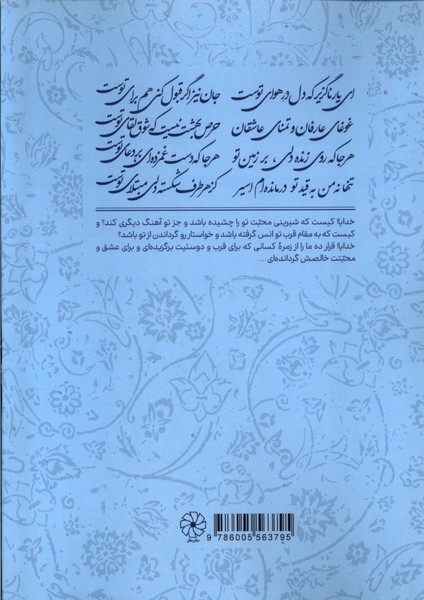 ای یار ناگزیر که دل در هوای توست جان نیز اگر قبول کنی هم برای توست
غوغای عارفان و تمنای عاشقان حرص بهشت نیست که شوق لقای توست
هر جا که روی زنده دلی، بر زمین تو هر جا که دست غمزده‌ای بر دعای توست
تنها نه من به قید تو درمانده‌ام اسیر کز هر طرف شکسته دلی مبتلای توست
خدایا! کیست که شیرینی محبّت تو را چشیده باشد و جز تو آهنگ دیگری کند؟ و
کیست که به مقام قرب تو انس گرفته باشد و خواستار رو گرداندن از تو باشد؟
خدایا! قرار ده ما را از زمرهٔ کسانی که برای قرب و دوستیت برگزیده‌ای و برای عشق و
محبّتت خالصش گردانده‌ای...
9 786005 563795